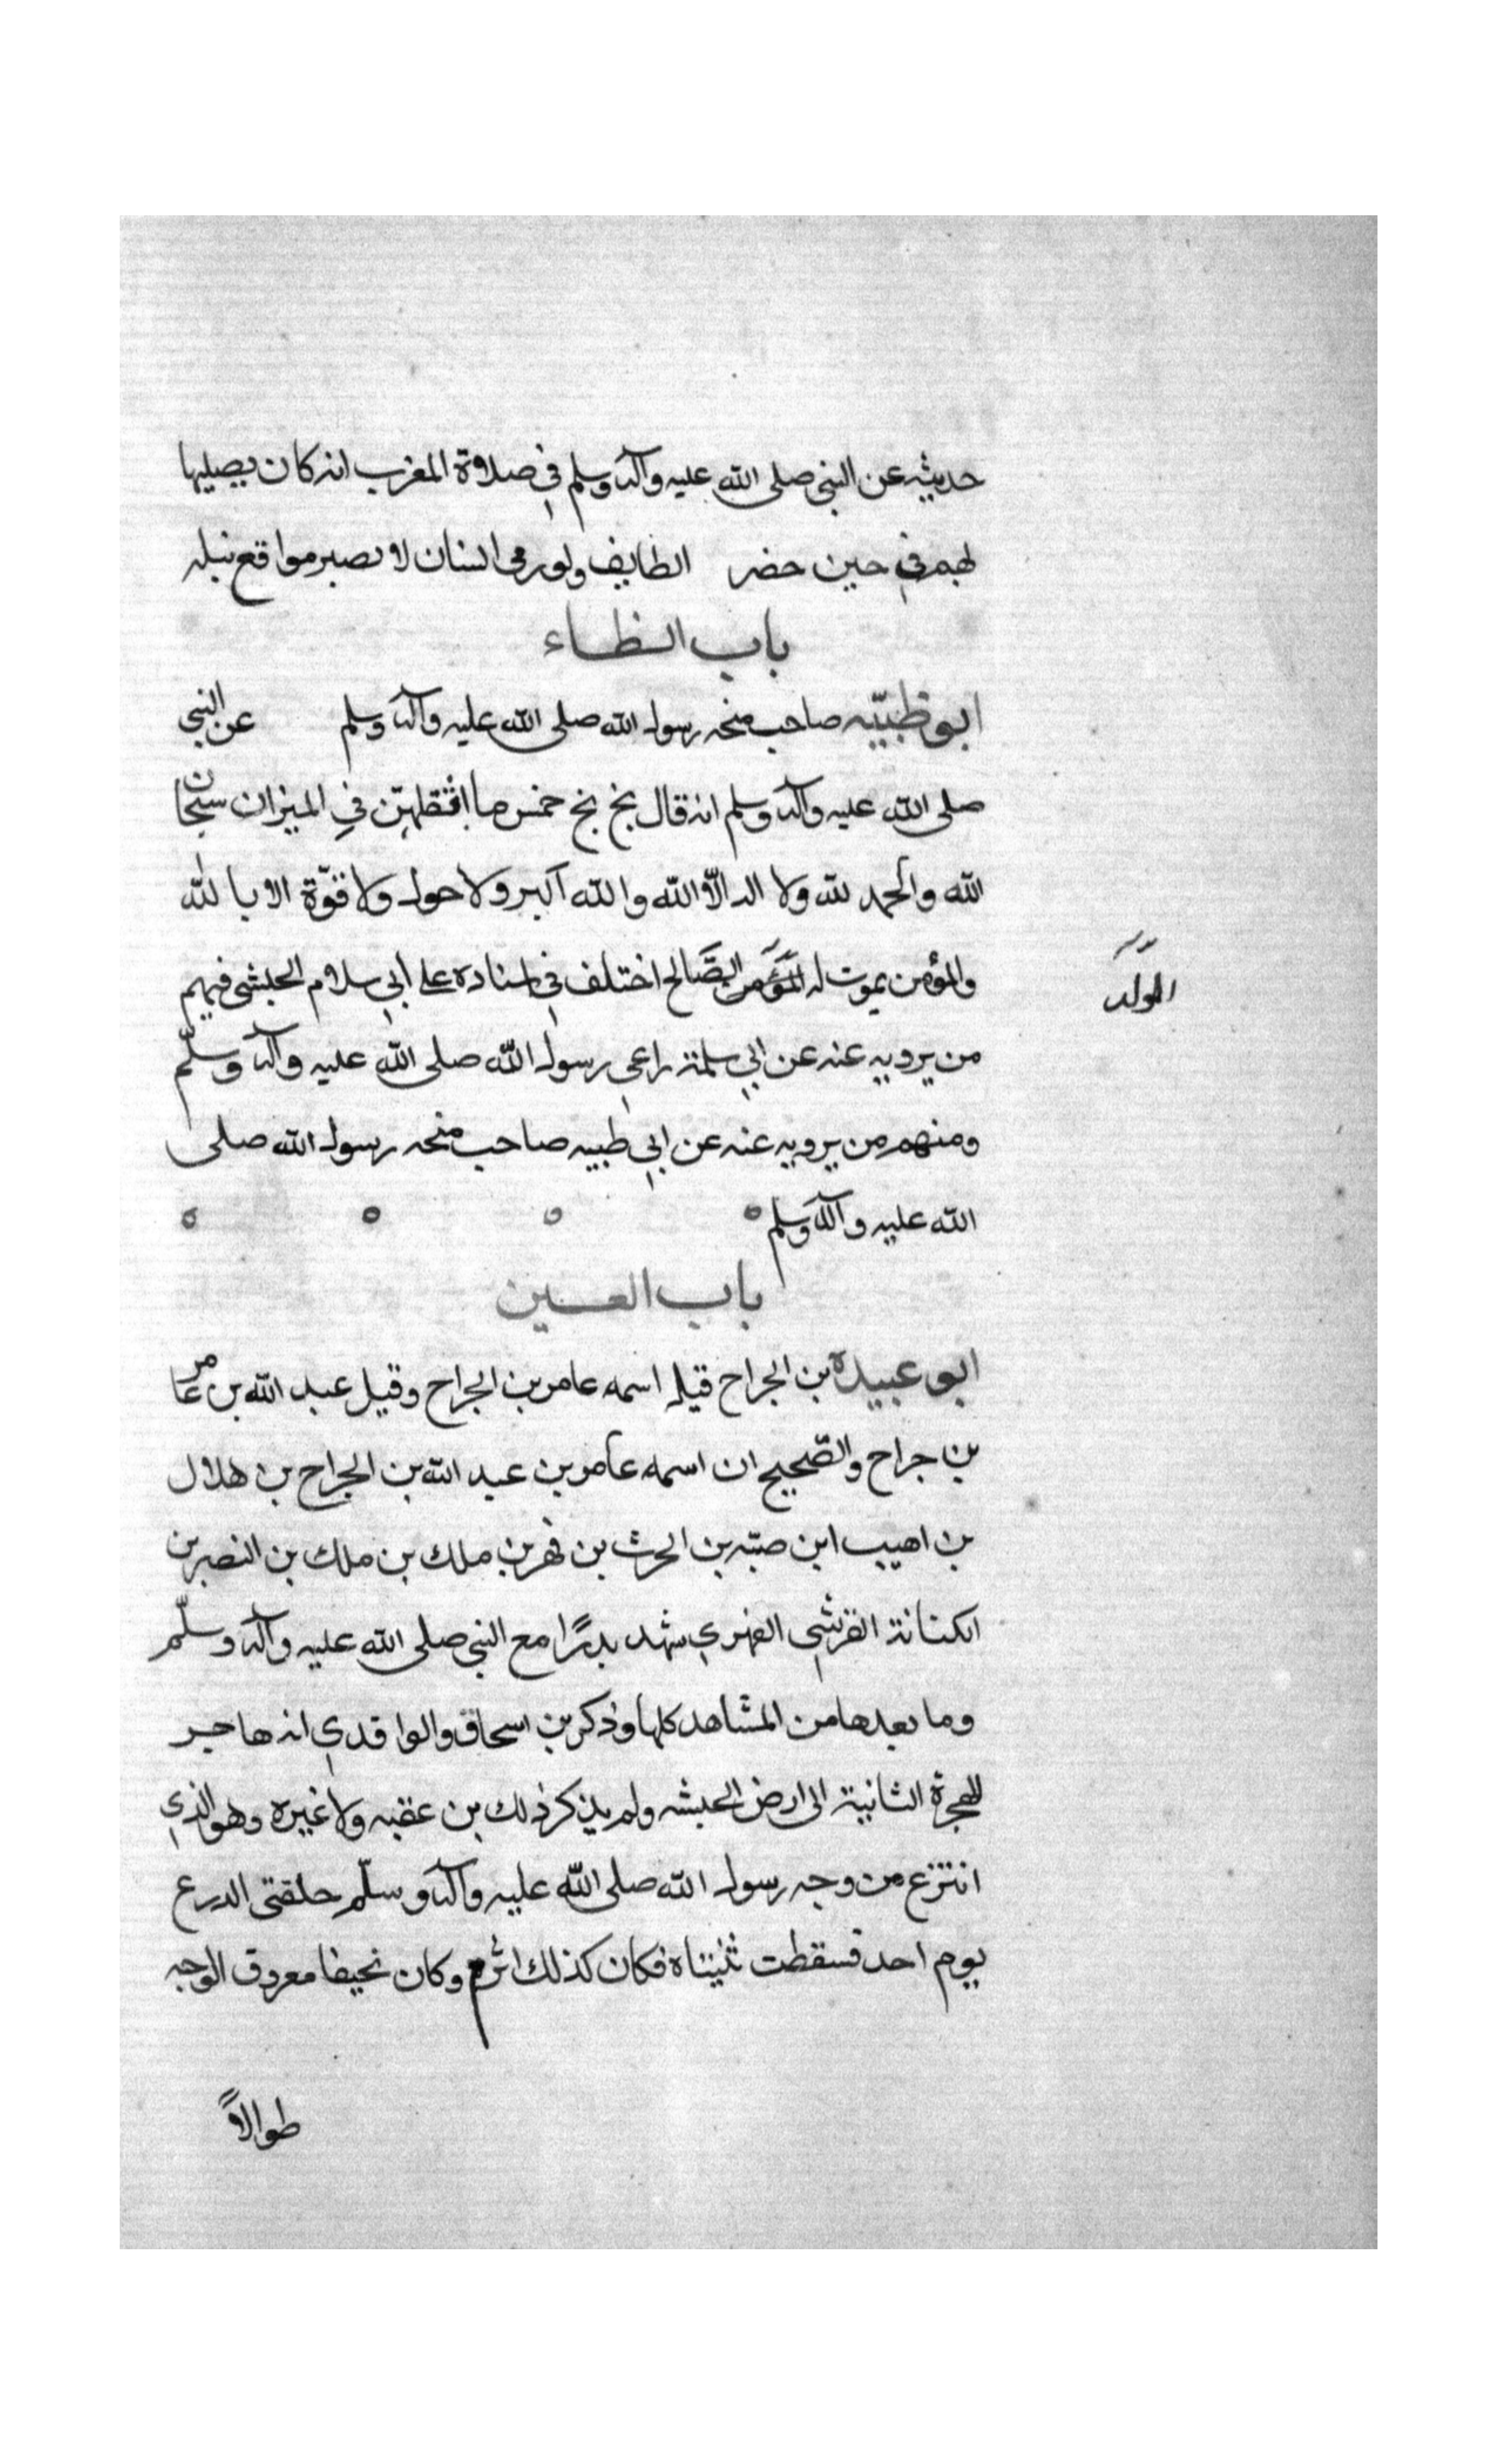 حديثه عن النبي صلى الله عليه وآله وسلم في صلاوة المغرب انه كان يصليها
لهم في حين حضر الطايف ولو رمى انسان لا بصر مواقع نبله
باب الظاء
ابو ظبيّه صاحب منحه رسول الله صلى الله عليه وآله وسلم عن النبي
صلى الله عليه وآله وسلم انه قال بخ بخ خمس ما اثقلهنّ في الميزان سبحان
الله والحمد لله ولا اله الّا الله والله اكبر ولا حول ولا قوّة الا بالله
والمؤمن يموت له المؤمن الصّالح اختلف في اسناده على ابي سلام الحبشى فيهم
الولد
من يرويه عنه عن ابي سلمة راعي رسول الله صلى الله عليه وآله وسلّم
ومنهم من يرويه عنه عن ابي طبيه صاحب منحه رسول الله صلى
الله عليه وآله وسلم
باب العين
ابو عبيدة بن الجراح قيل اسمه عامر بن الجراح وقيل عبد الله بن عامر
بن جراح والصّحيح ان اسمه عامر بن عبد الله بن الجراح بن هلال
بن اهيب ابن صبّه بن الحرث بن فهر بن ملك بن ملك بن النصر بن
الكنانة القرشي الفهري شهد بدرًا مع النبي صلى الله عليه وآله وسلّم
وما بعدها من المشاهد كلها وذكر بن اسحاق والواقدي انه هاجر
الهجرة الثانية الى ارض الحبشه ولم يذكر ذلك بن عقبه ولا غيره وهو الذي
انتزع من وجه رسول الله صلى الله عليه وآله وسلّم حلقتى الدرع
يوم احد فسقطت ثنيتاه فكان كذلك اثرم وكان نحيفا معروق الوجه
طوالاً